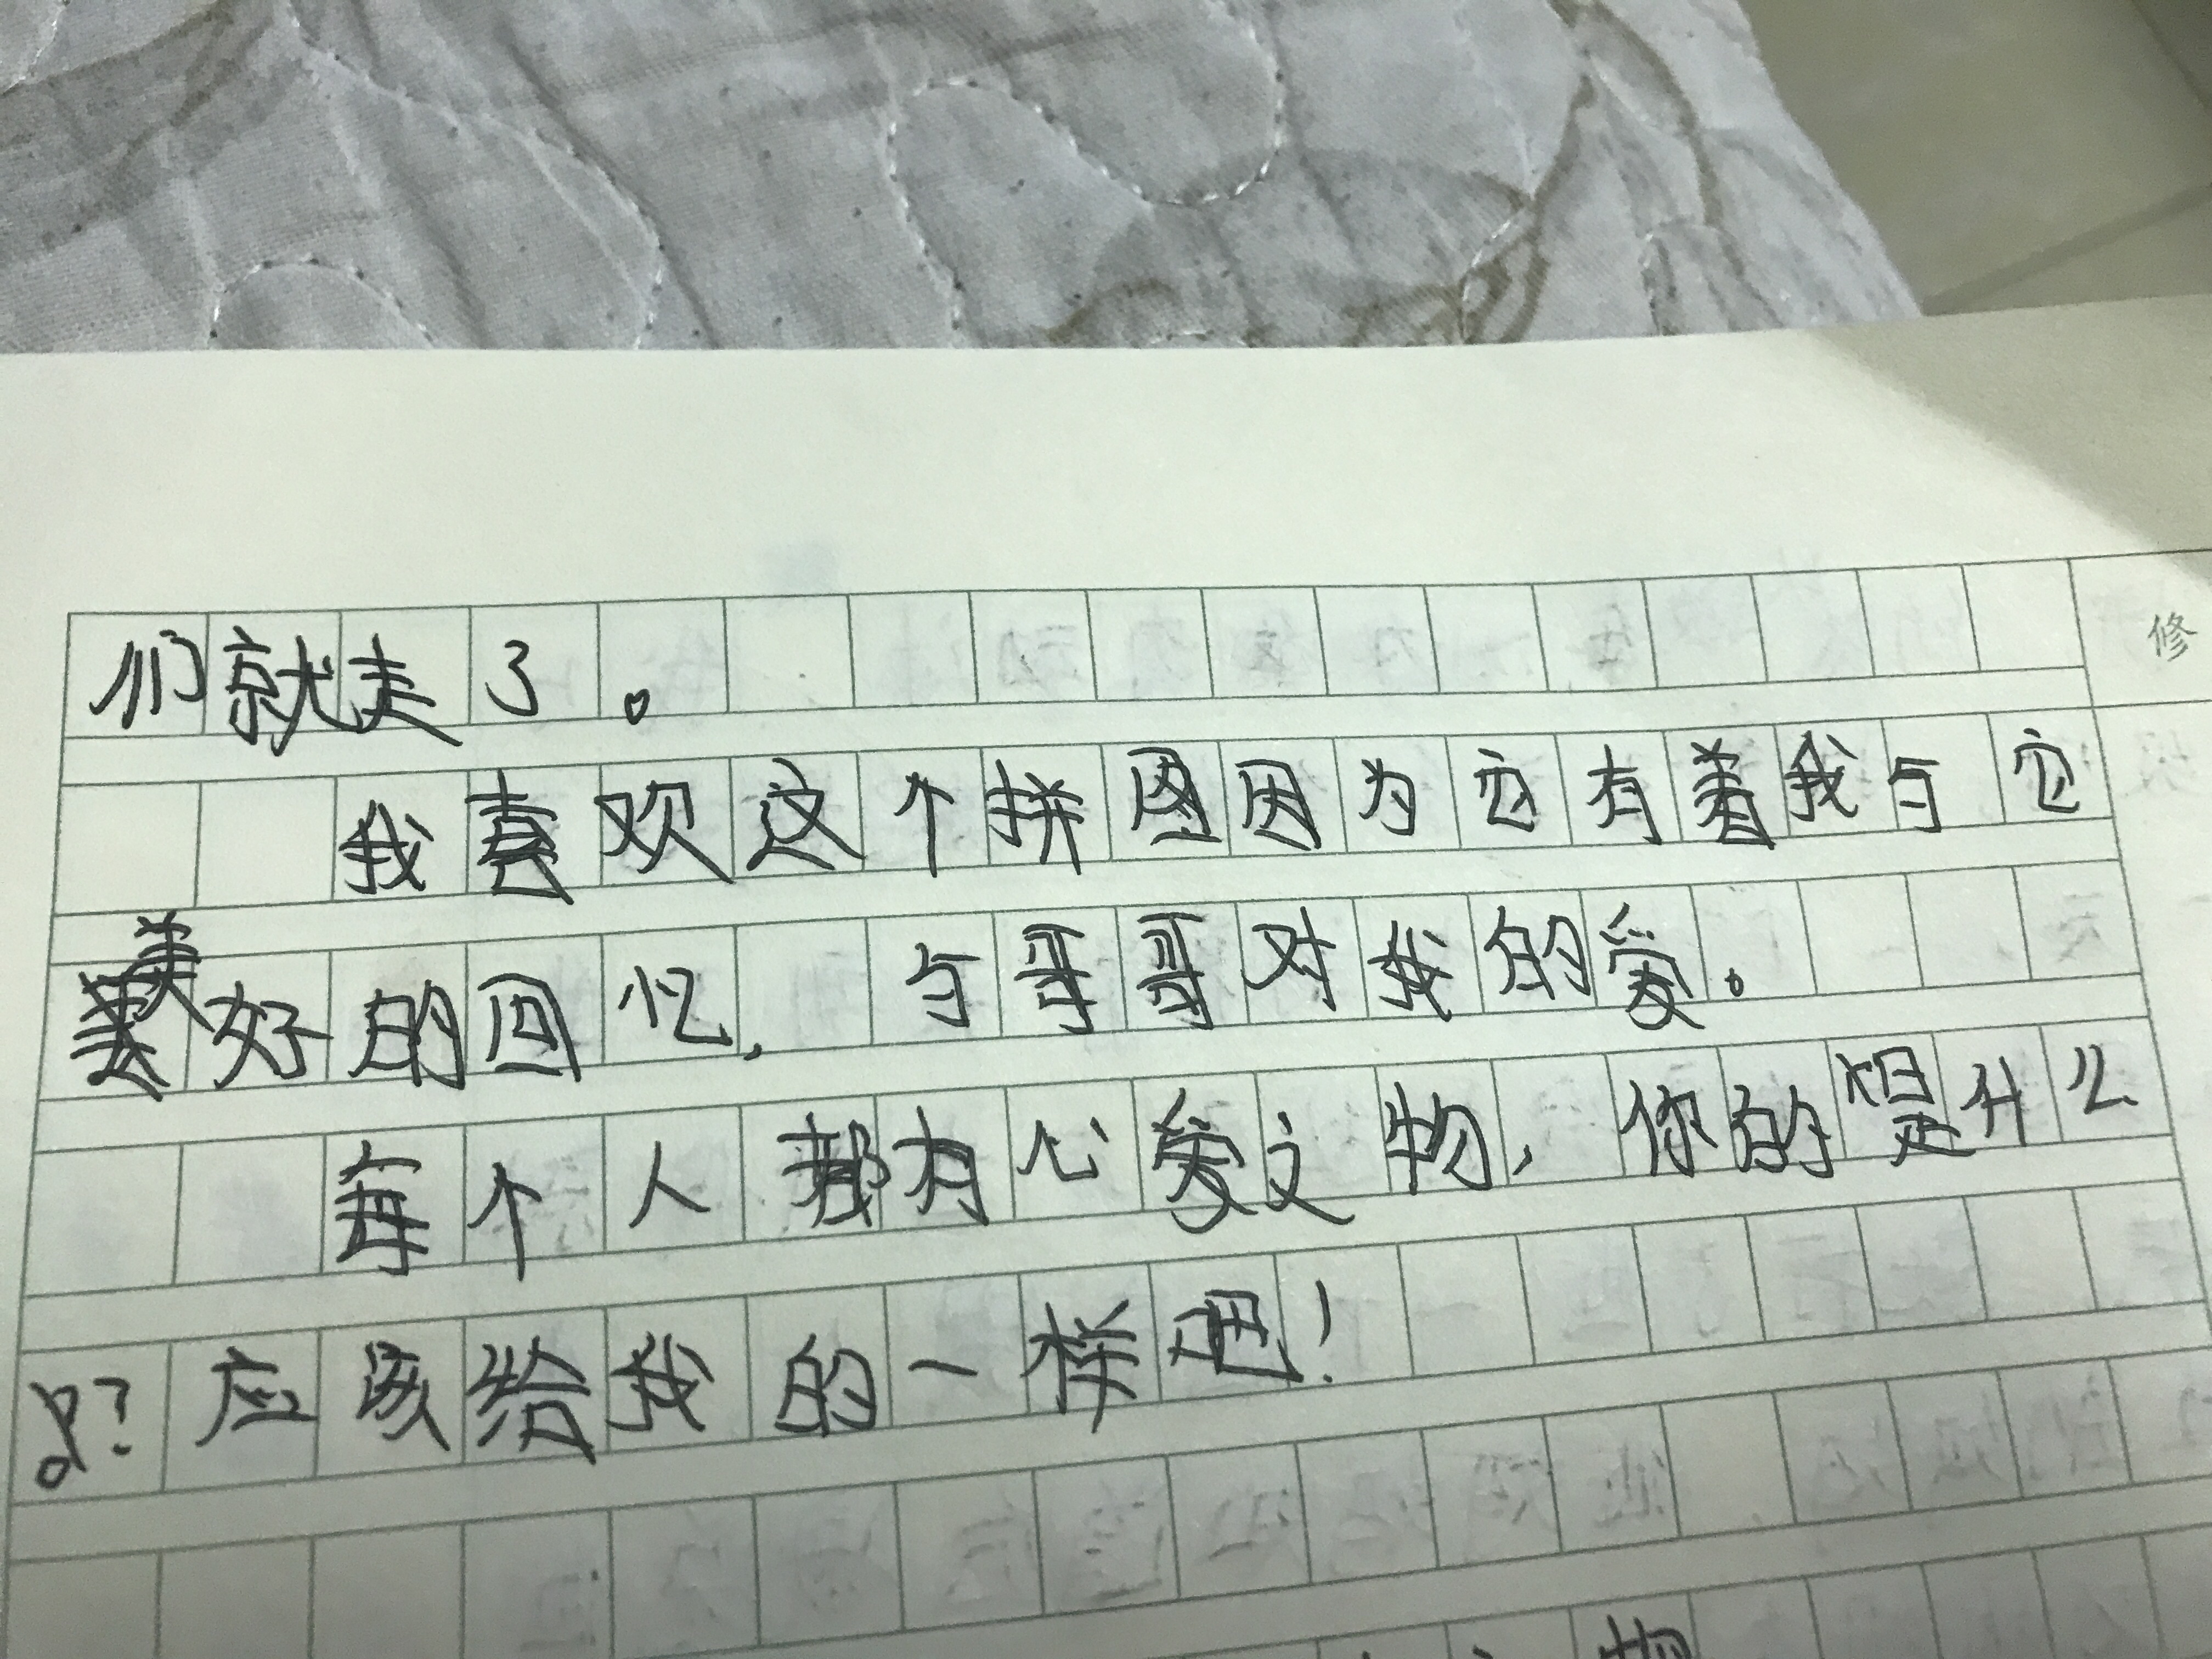 们就走了。
修
我喜欢这个拼图因为它有着我与它
美好的回忆，与哥哥对我的爱。
每个人都有心爱之物，你的是什么
？应该给我的一样吧！
物